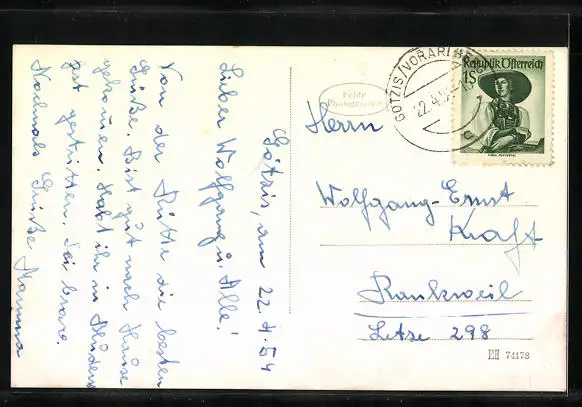 Götzis, am 22.4.54
Lieber Wolfgang u. Alle!
Von der Hütte die besten
Grüße. Bist gut nach Hause
gekommen. Habt ihr in Bludenz
gestritten. Sei brav.
Nochmals Grüße Mamma
Echte
Photographie
GÖTZIS/VORARLBERG
22.4.54
c
Republik Österreich
1S
Herrn
Wolfgang-Ernst
Kraft
Rankweil
Letze 298
74178